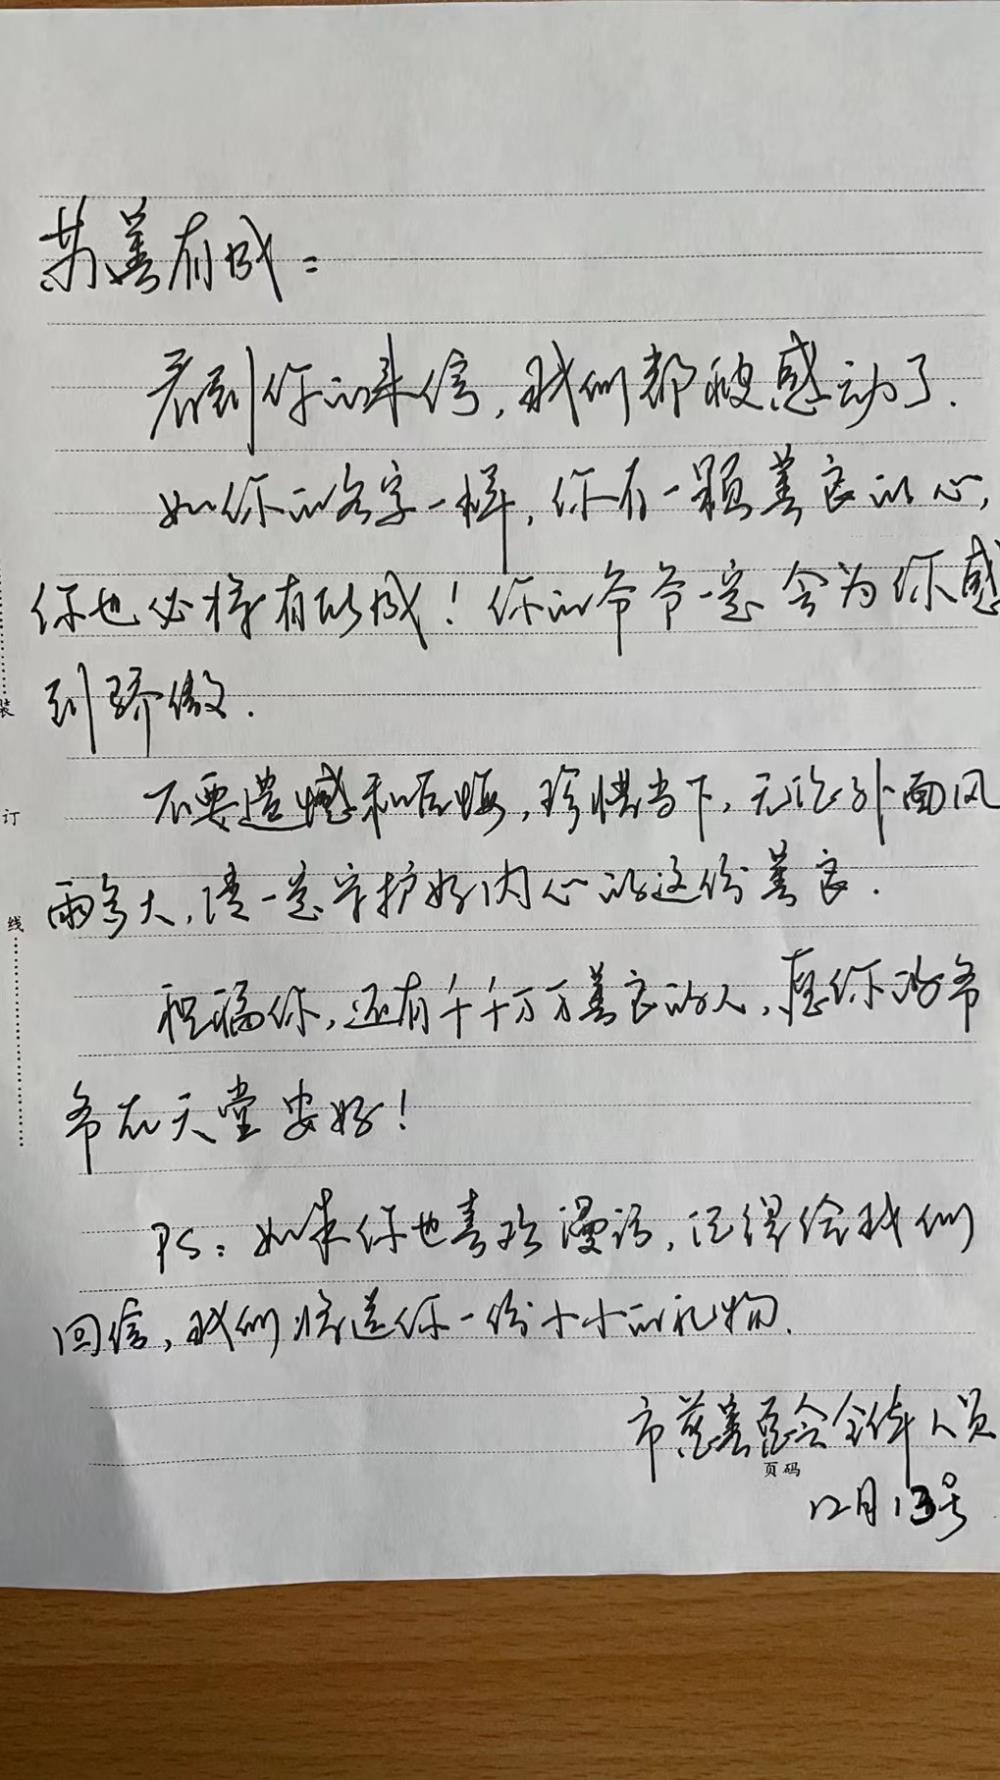 苏善有成：
看到你的来信，我们都被感动了.
如你的名字一样，你有一颗善良的心，
你也必将有所成！你的爷爷一定会为你感
到骄傲.
不要遗憾和后悔，珍惜当下，无论外面风
雨多大，请一定守护好内心的这份善良.
祝福你，还有千千万万善良的人，愿你的爷
爷在天堂安好！
PS：如果你也喜欢漫话，记得给我们
回信，我们将送你一份小小的礼物.
市慈善总会全体人员
页码
12月13号
装
订
线